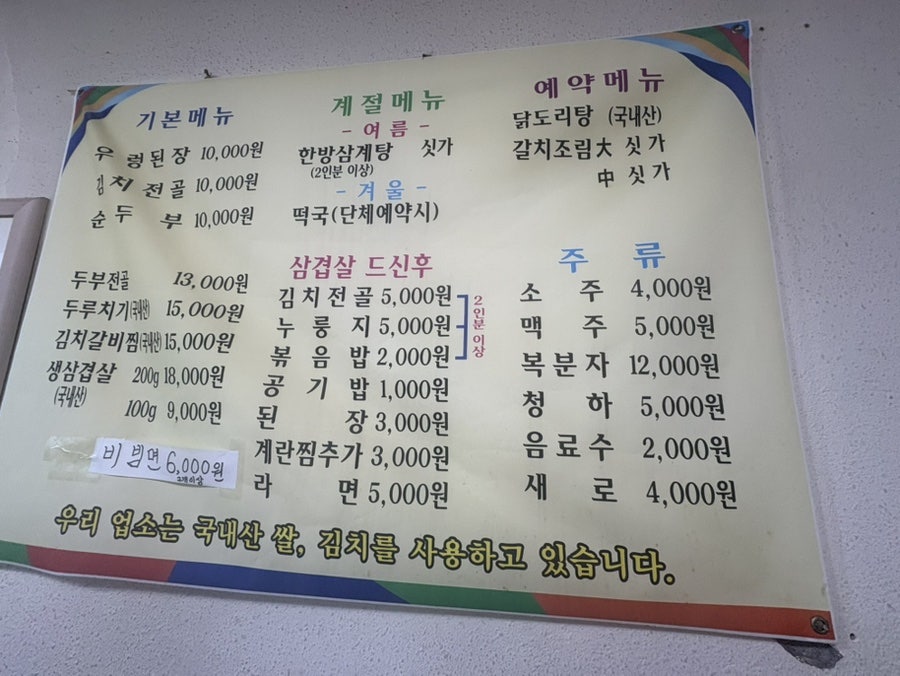 기본메뉴
우렁된장 10,000원
김치전골 10,000원
순두부 10,000원
두부전골 13,000원
두루치기(국내산) 15,000원
김치갈비찜(국내산) 15,000원
생삼겹살 200g 18,000원
(국내산)
100g 9,000원
비빔면 6,000원
2개이상
계절메뉴
- 여름 -
한방삼계탕 싯가
(2인분 이상)
- 겨울 -
떡국(단체예약시)
삼겹살 드신후
김치전골 5,000원
누룽지 5,000원
볶음밥 2,000원
2인분 이상
공기밥 1,000원
된장 3,000원
계란찜추가 3,000원
라면 5,000원
예약메뉴
닭도리탕 (국내산)
갈치조림 大 싯가
中 싯가
주류
소주 4,000원
맥주 5,000원
복분자 12,000원
청하 5,000원
음료수 2,000원
새로 4,000원
우리 업소는 국내산 쌀, 김치를 사용하고 있습니다.